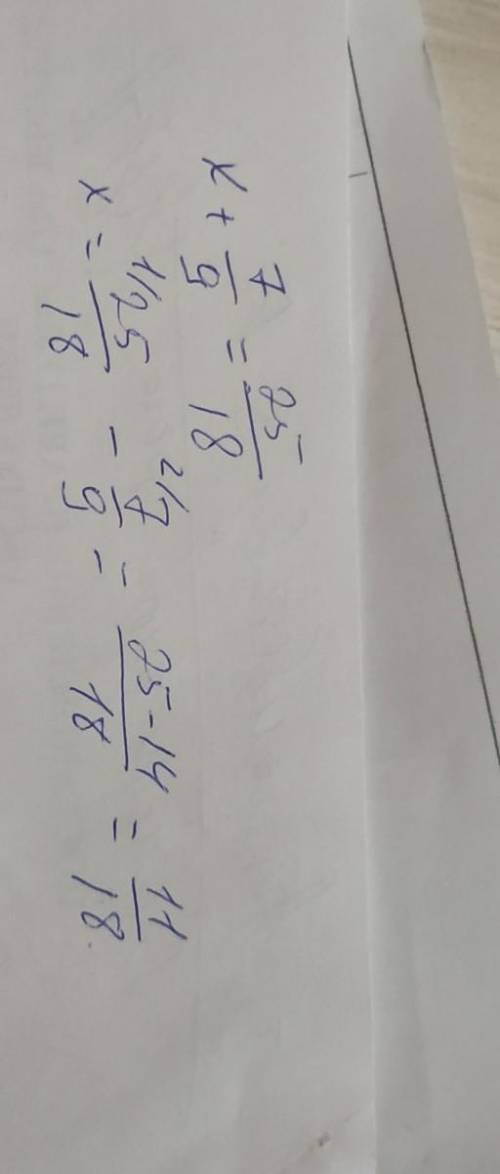 x + 7/9 = 25/18
x = ¹⁾25/18 - ²⁾7/9 = (25-14)/18 = 11/18